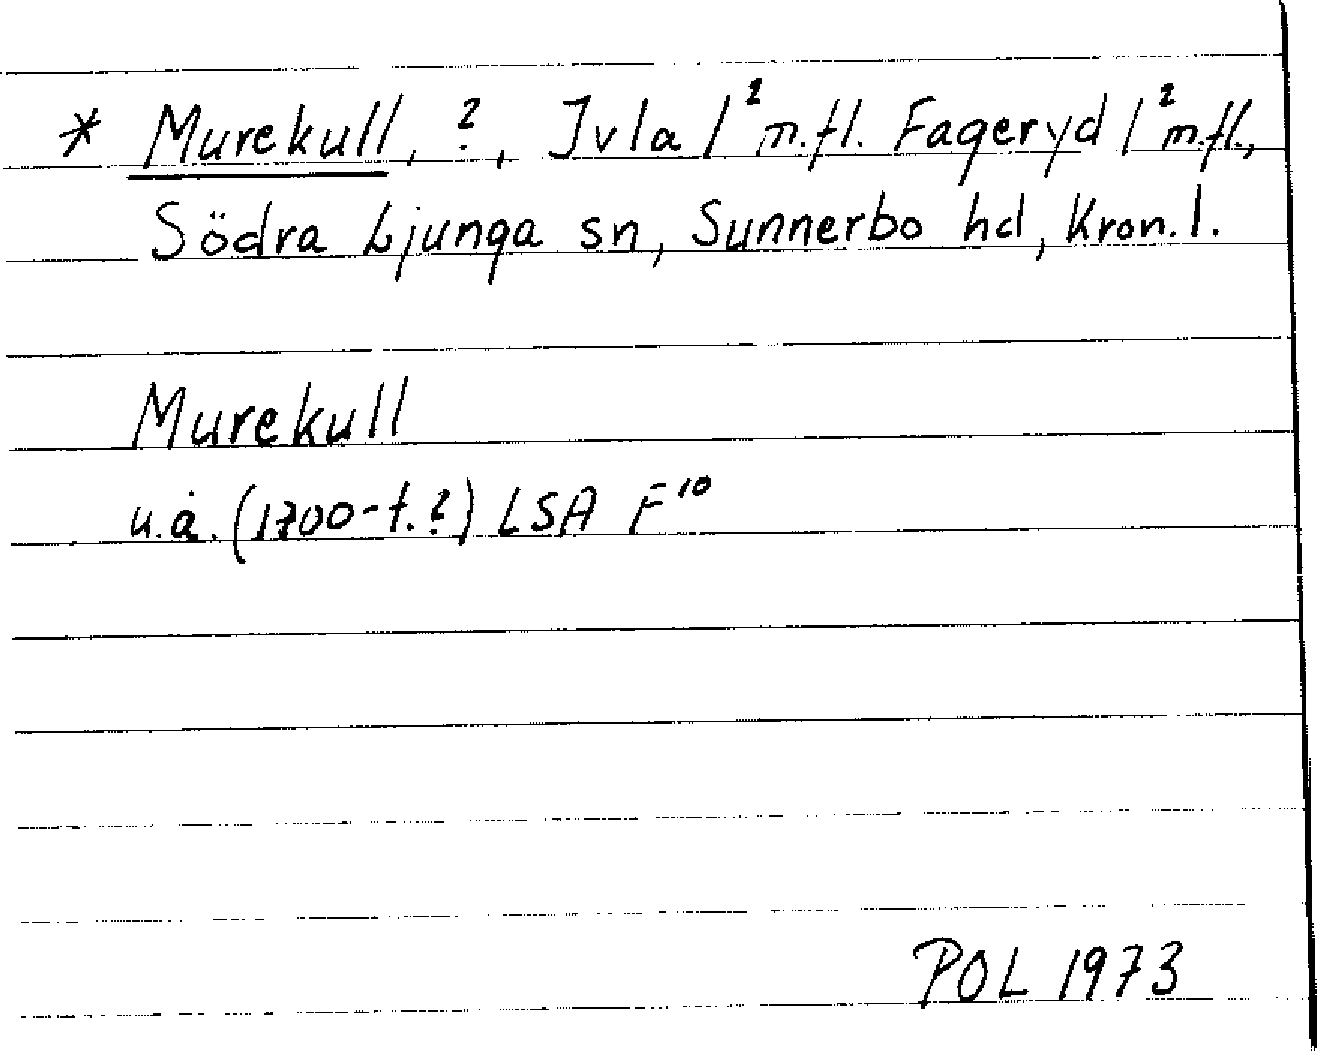 * Murekull, ?, Ivla 1² m.fl. Fageryd 1² m.fl.,
Södra Ljunga sn, Sunnerbo hd, Kron. l.
Murekull
u.å. (1700-t.?) LSA F¹⁰
POL 1973